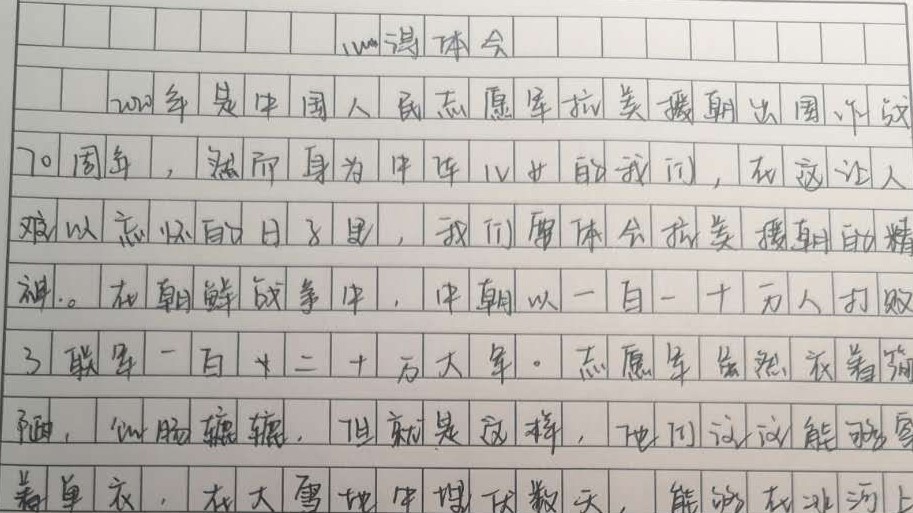 心得体会
2020年是中国人民志愿军抗美援朝出国作战
70周年，然而身为中华儿女的我们，在这让人
难以忘怀的日子里，我们要体会抗美援朝的精
神。在朝鲜战争中，中朝以一百一十万人打败
了联军一百 二十万大军。志愿军虽然衣着简
陋，饥肠辘辘，但就是这样，他们 能够穿
着单衣，在大雪地中埋伏数天，能够在冰河上